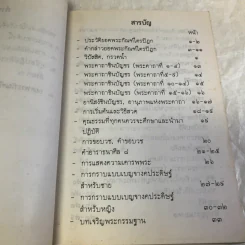 สารบัญ
หน้า
- ประวัติยอดพระกัณฑ์ไตรปิฎก ๑-๒
- คำกล่าวยอดพระกัณฑ์ไตรปิฎก ๓-๑๑
- วิปัสสิต, กรวดน้ำ
- พระคาถาชินบัญชร (พระคาถาที่ ๑-๔) ๑๓
- พระคาถาชินบัญชร (พระคาถาที่ ๕-๙) ๑๔
- พระคาถาชินบัญชร (พระคาถาที่
- พระคาถาชินบัญชร (พระคาถาที่
- อานิสงส์ชินบัญชร, อานุภาพแห่งพระคาถา ๑๖-๑๗
- การเริ่มต้นและวิธีสวด ๑๘
- คุณธรรมที่ทุกคนควรจะศึกษาและนำมา ๑๙
ปฏิบัติ
- การขอบวช, คำขอบวช ๒๐
- คำอาราธนาศีล ๘ ๒๑-๒๕
- การแสดงความเคารพพระ ๒๖
- การกราบแบบเบญจางคประดิษฐ์
สำหรับชาย ๒๗-๒๙
- การกราบแบบเบญจางคประดิษฐ์
สำหรับหญิง ๓๐-๓๒
- บทเจริญพระกรรมฐาน ๓๓